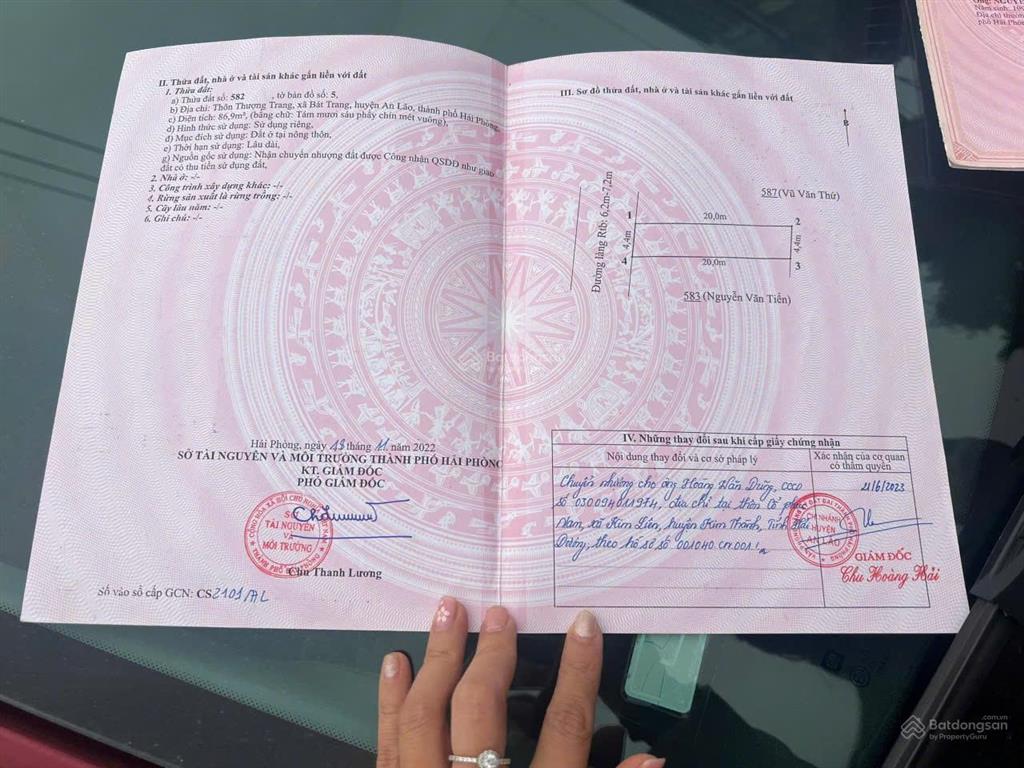 II. Thửa đất, nhà ở và tài sản khác gắn liền với đất
1. Thửa đất:
a) Thửa đất số: 582 , tờ bản đồ số: 5,
b) Địa chỉ: Thôn Thượng Trang, xã Bát Trang, huyện An Lão, thành phố Hải Phòng,
c) Diện tích: 86,9m², (bằng chữ: Tám mươi sáu phẩy chín mét vuông),
d) Hình thức sử dụng: Sử dụng riêng,
đ) Mục đích sử dụng: Đất ở tại nông thôn,
e) Thời hạn sử dụng: Lâu dài,
g) Nguồn gốc sử dụng: Nhận chuyển nhượng đất được Công nhận QSDĐ như giao
đất có thu tiền sử dụng đất,
2. Nhà ở: -/-
3. Công trình xây dựng khác: -/-
4. Rừng sản xuất là rừng trồng: -/-
5. Cây lâu năm: -/-
6. Ghi chú: -/-
Hải Phòng, ngày 18 tháng 11 năm 2022
SỞ TÀI NGUYÊN VÀ MÔI TRƯỜNG THÀNH PHỐ HẢI PHÒNG
KT. GIÁM ĐỐC
PHÓ GIÁM ĐỐC
SỞ
TÀI NGUYÊN
VÀ
MÔI TRƯỜNG
Chu Thanh Lương
Số vào sổ cấp GCN: CS2101/AL
III. Sơ đồ thửa đất, nhà ở và tài sản khác gắn liền với đất
B
587 (Vũ Văn Thứ)
Đường làng Rtb: 6,2m-7,2m
1
20,0m
2
4,4m
4,4m
4
20,0m
3
583 (Nguyễn Văn Tiến)
IV. Những thay đổi sau khi cấp giấy chứng nhận
Nội dung thay đổi và cơ sở pháp lý
Xác nhận của cơ quan
có thẩm quyền
Chuyển nhượng cho ông Hoàng Văn Dũng, CCCD
số 030094011974, địa chỉ tại thôn Cổ
Nam, xã Kim Liên, huyện Kim Thành, Tỉnh Hải
Dương, theo hồ sơ số 001040.CN.001.
21/6/2023
CHI NHÁNH
HUYỆN
AN LÃO
GIÁM ĐỐC
Chu Hoàng Hải
Ông: NGUYỄ
Năm sinh: 19
Địa chỉ thườn
phố Hải Phòn
Batdongsan
Batdongsan.com.vn
by PropertyGuru